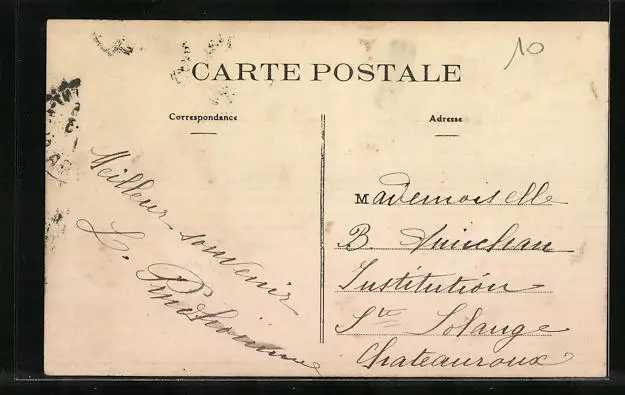 10
CARTE POSTALE
Correspondance
Adresse
Meilleur souvenir
L.
Mademoiselle
B.
Institution
Ste Solange
Chateauroux